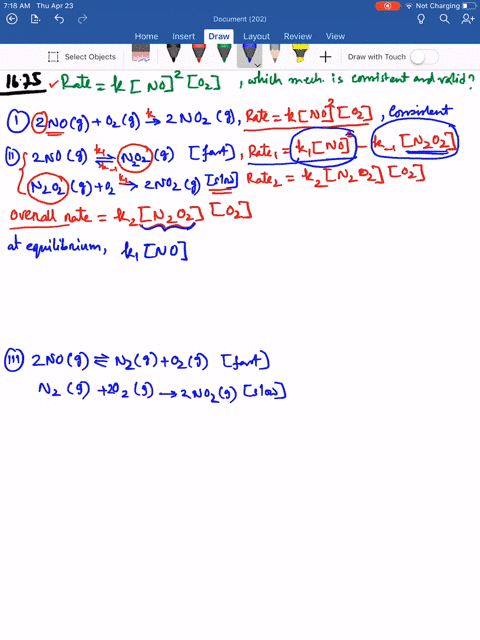 7:18 AM Thu Apr 23
Not Charging
Document (202)
Home Insert Draw Layout Review View
Select Objects
Draw with Touch
16.75 Rate = k [NO]² [O₂] , which mech. is consistent and valid?
(i) 2NO(g) + O₂(g) →k 2NO₂(g), Rate = k[NO]²[O₂] , consistent
(ii) 2NO(g) ⇌ k₁ k₋₁ N₂O₂(g) [fast], Rate₁ = k₁[NO]² − k₋₁[N₂O₂]
N₂O₂(g) + O₂ →k₂ 2NO₂(g) [slow] Rate₂ = k₂[N₂O₂][O₂]
overall rate = k₂[N₂O₂][O₂]
at equilibrium, k₁[NO]
(iii) 2NO(g) ⇌ N₂(g) + O₂(g) [fast]
N₂(g) + 2O₂(g) → 2NO₂(g) [slow]